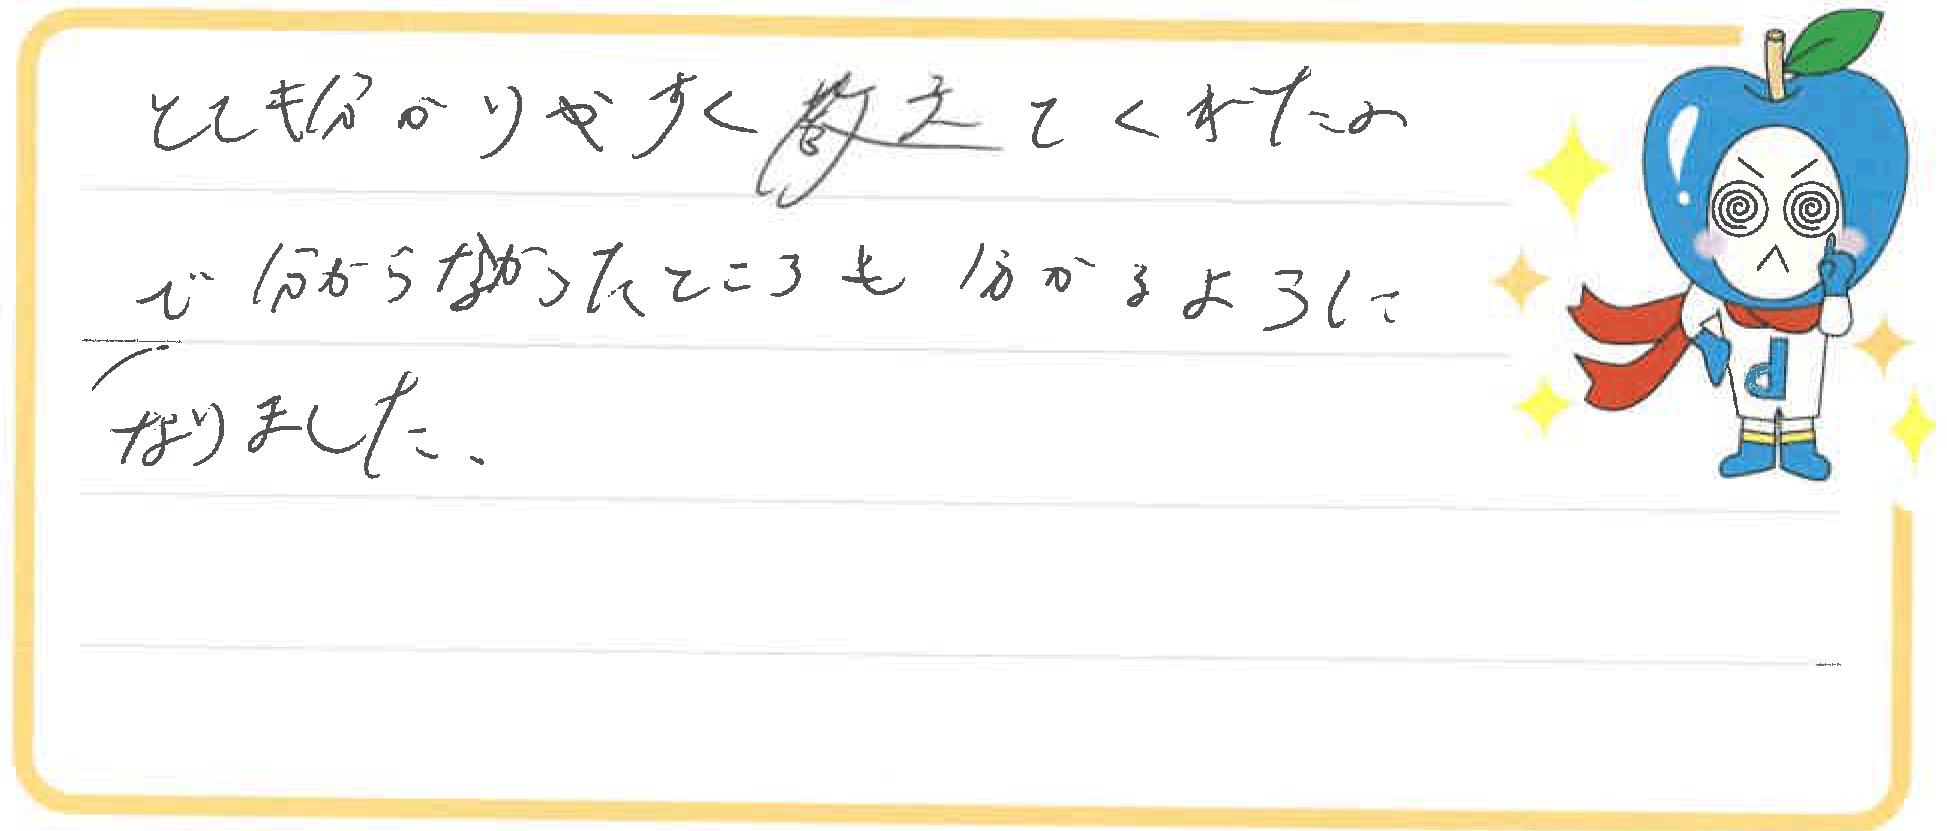 とても分かりやすく教えてくれたの
で分からなかったところも分かるように
なりました、
d